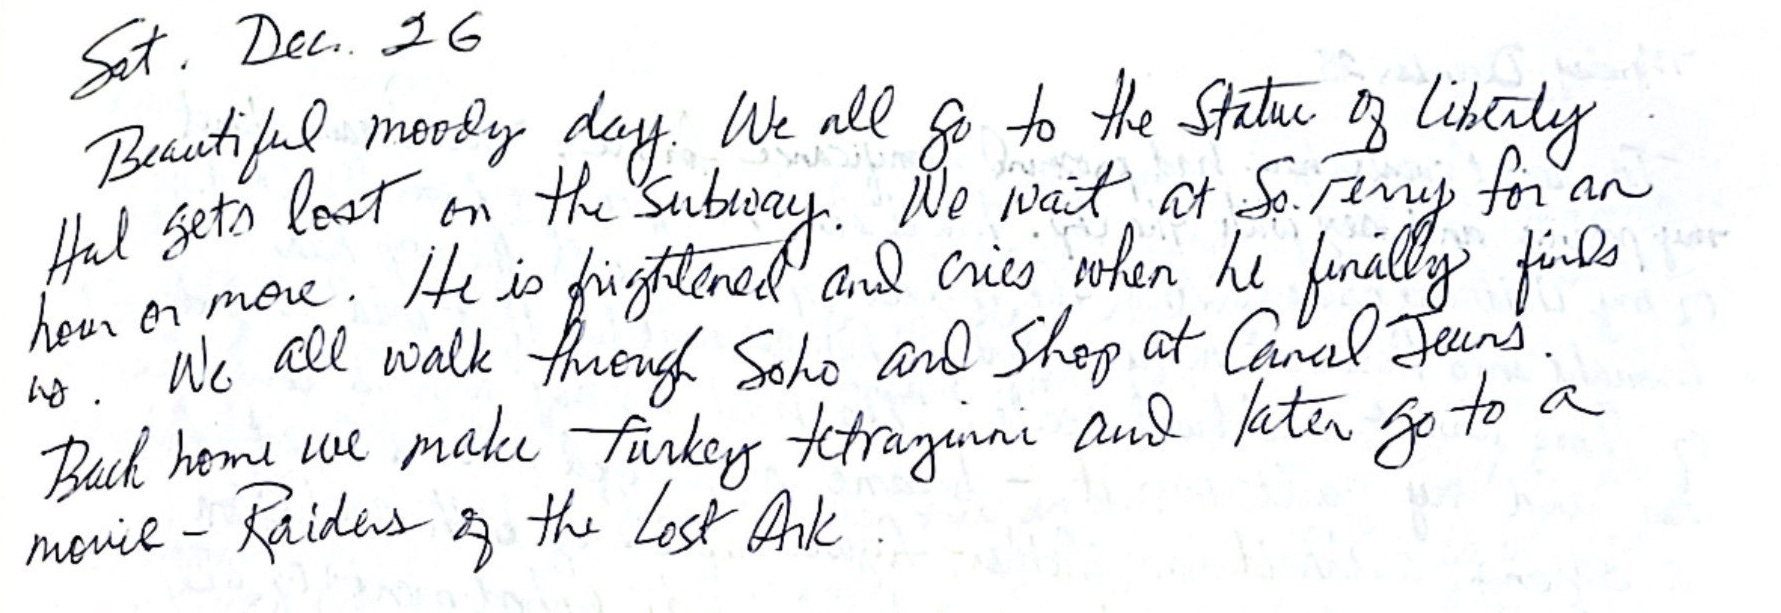 Sat. Dec. 26
Beautiful moody day. We all go to the Statue of Liberty
Hal gets lost on the subway. We wait at So. Ferry for an
hour or more. He is frightened and cries when he finally finds
us. We all walk through Soho and shop at Canal Jeans.
Back home we make Turkey tetrazinni and later go to a
movie – Raiders of the Lost Ark.